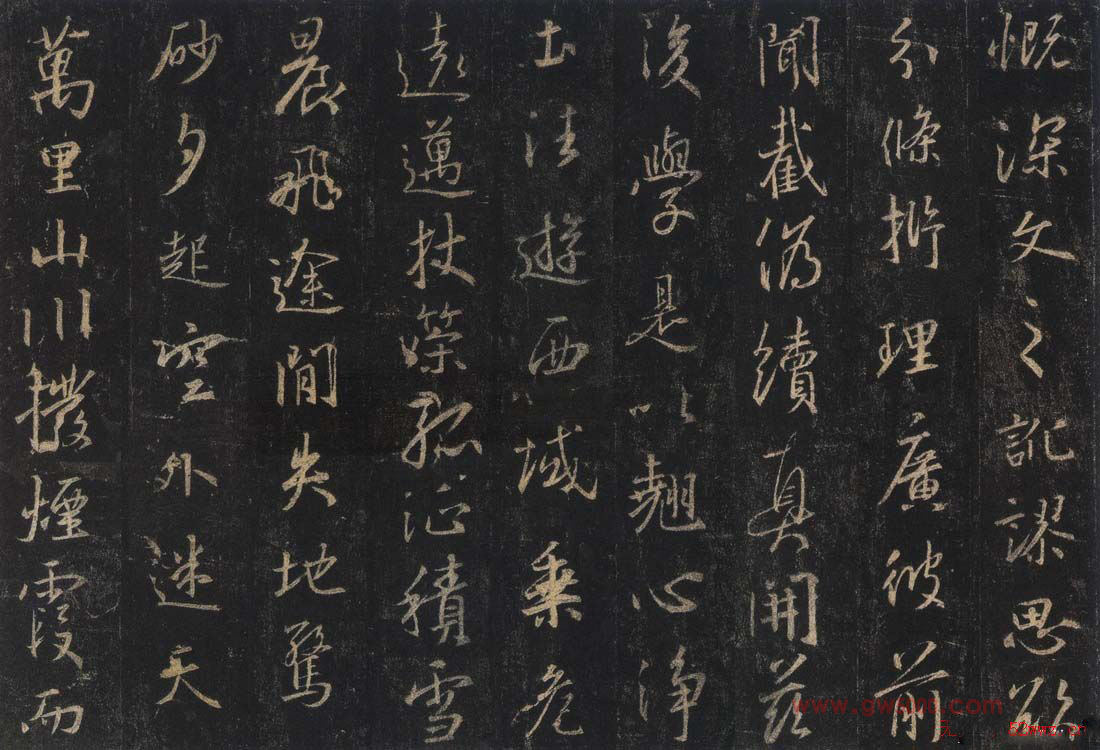 慨深文之訛謬思欲
分條析理廣彼前
聞截偽續真開茲
後學是以翹心淨
土法遊西域乗危
遠邁杖策孤征積雪
晨飛途閒失地驚
砂夕起空外迷天
萬里山川撥煙霞而